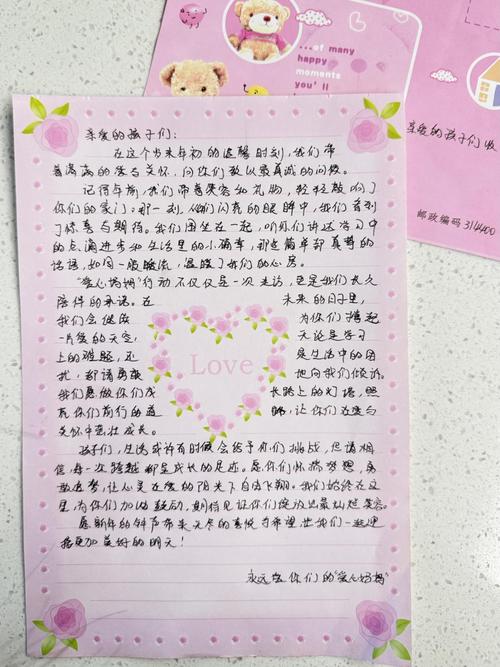 ...of many
happy
moments
you'll
亲爱的孩子们收
邮政编码 314400
亲爱的孩子们：
在这个岁末年初的温馨时刻，我们带
着满满的爱与关怀，向你们致以最真诚的问候。
记得年前，我们带着爱意和礼物，轻轻敲响了
你们的家门。那一刻，从你们闪亮的眼眸中，我们看到
了惊喜与期待。我们围坐在一起，听你们讲述学习中
的点滴进步和生活里的小确幸，那些简单却真挚的
话语，如同一股暖流，温暖了我们的心房。
“爱心妈妈”行动不仅仅是一次走访，更是我们长久
陪伴的承诺。在 未来的日子里，
我们会继续 为你们撑起
一片爱的天空， 无论是学习
上的难题，还 是生活中的困
扰，都请勇敢 地向我们倾诉。
我们愿做你们成 长路上的灯塔，照
亮你们前行的道 路，让你们在爱与
关怀中茁壮成长。
Love
孩子们，生活或许有时候会给予你们挑战，但请相
信，每一次跨越都是成长的足迹。愿你们怀揣梦想，勇
敢追梦，让心灵在爱的阳光下自由飞翔。我们始终在这
里，为你们加油鼓劲，期待见证你们绽放出最灿烂笑容。
愿新年的钟声带来无尽的喜悦与希望，让我们一起迎
接更加美好的明天！
永远爱你们的“爱心妈妈”